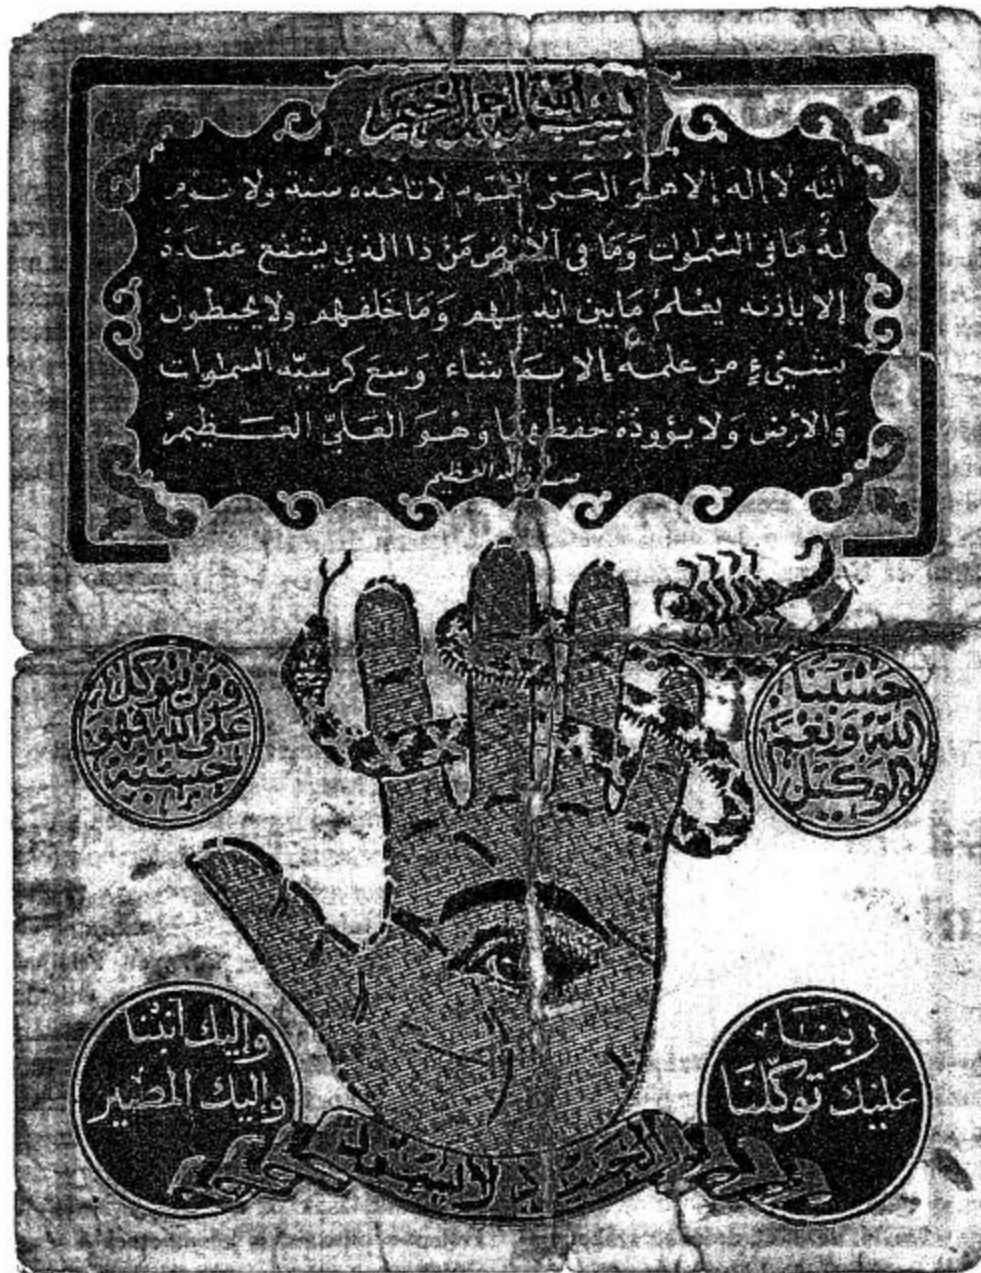 بسم الله الرحمن الرحيم
الله لا إله إلا هو الحيّ القيوم لا تأخذه سنة ولا نوم
لهُ مَا في السّماوات وَمَا في الأرض مَن ذا الذي يشفع عندهُ
إلا بإذنه يعْلمُ مَابين ايديهم وَمَا خَلفهم ولا يحيطون
بشيْئٍ من علمه إلا بما شاء وَسِعَ كرسيّه السماوات
وَالأرض ولا يؤودهُ حفظهما وهو العَليّ العَظيمْ
صدق الله العظيم
حَسْبُنا
اللهُ وَنِعْمَ
الوَكيل
ومن يتوكل
على الله فهو
حسبه
ربنَا
عليك توكّلنا
وإليك أنبنا
وإليك المصير
الحسود لا يسود